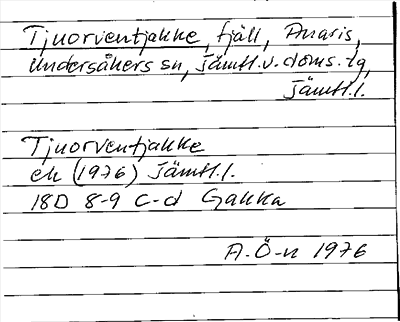 Tjuorventjakke, fjäll, Anaris,
Undersåkers sn, Jämtl.v.doms.lg,
Jämtl.l.
Tjuorventjakke
ek (1976) Jämtl.l.
18D 8-9 c-d Gakka
A.Ö-n 1976